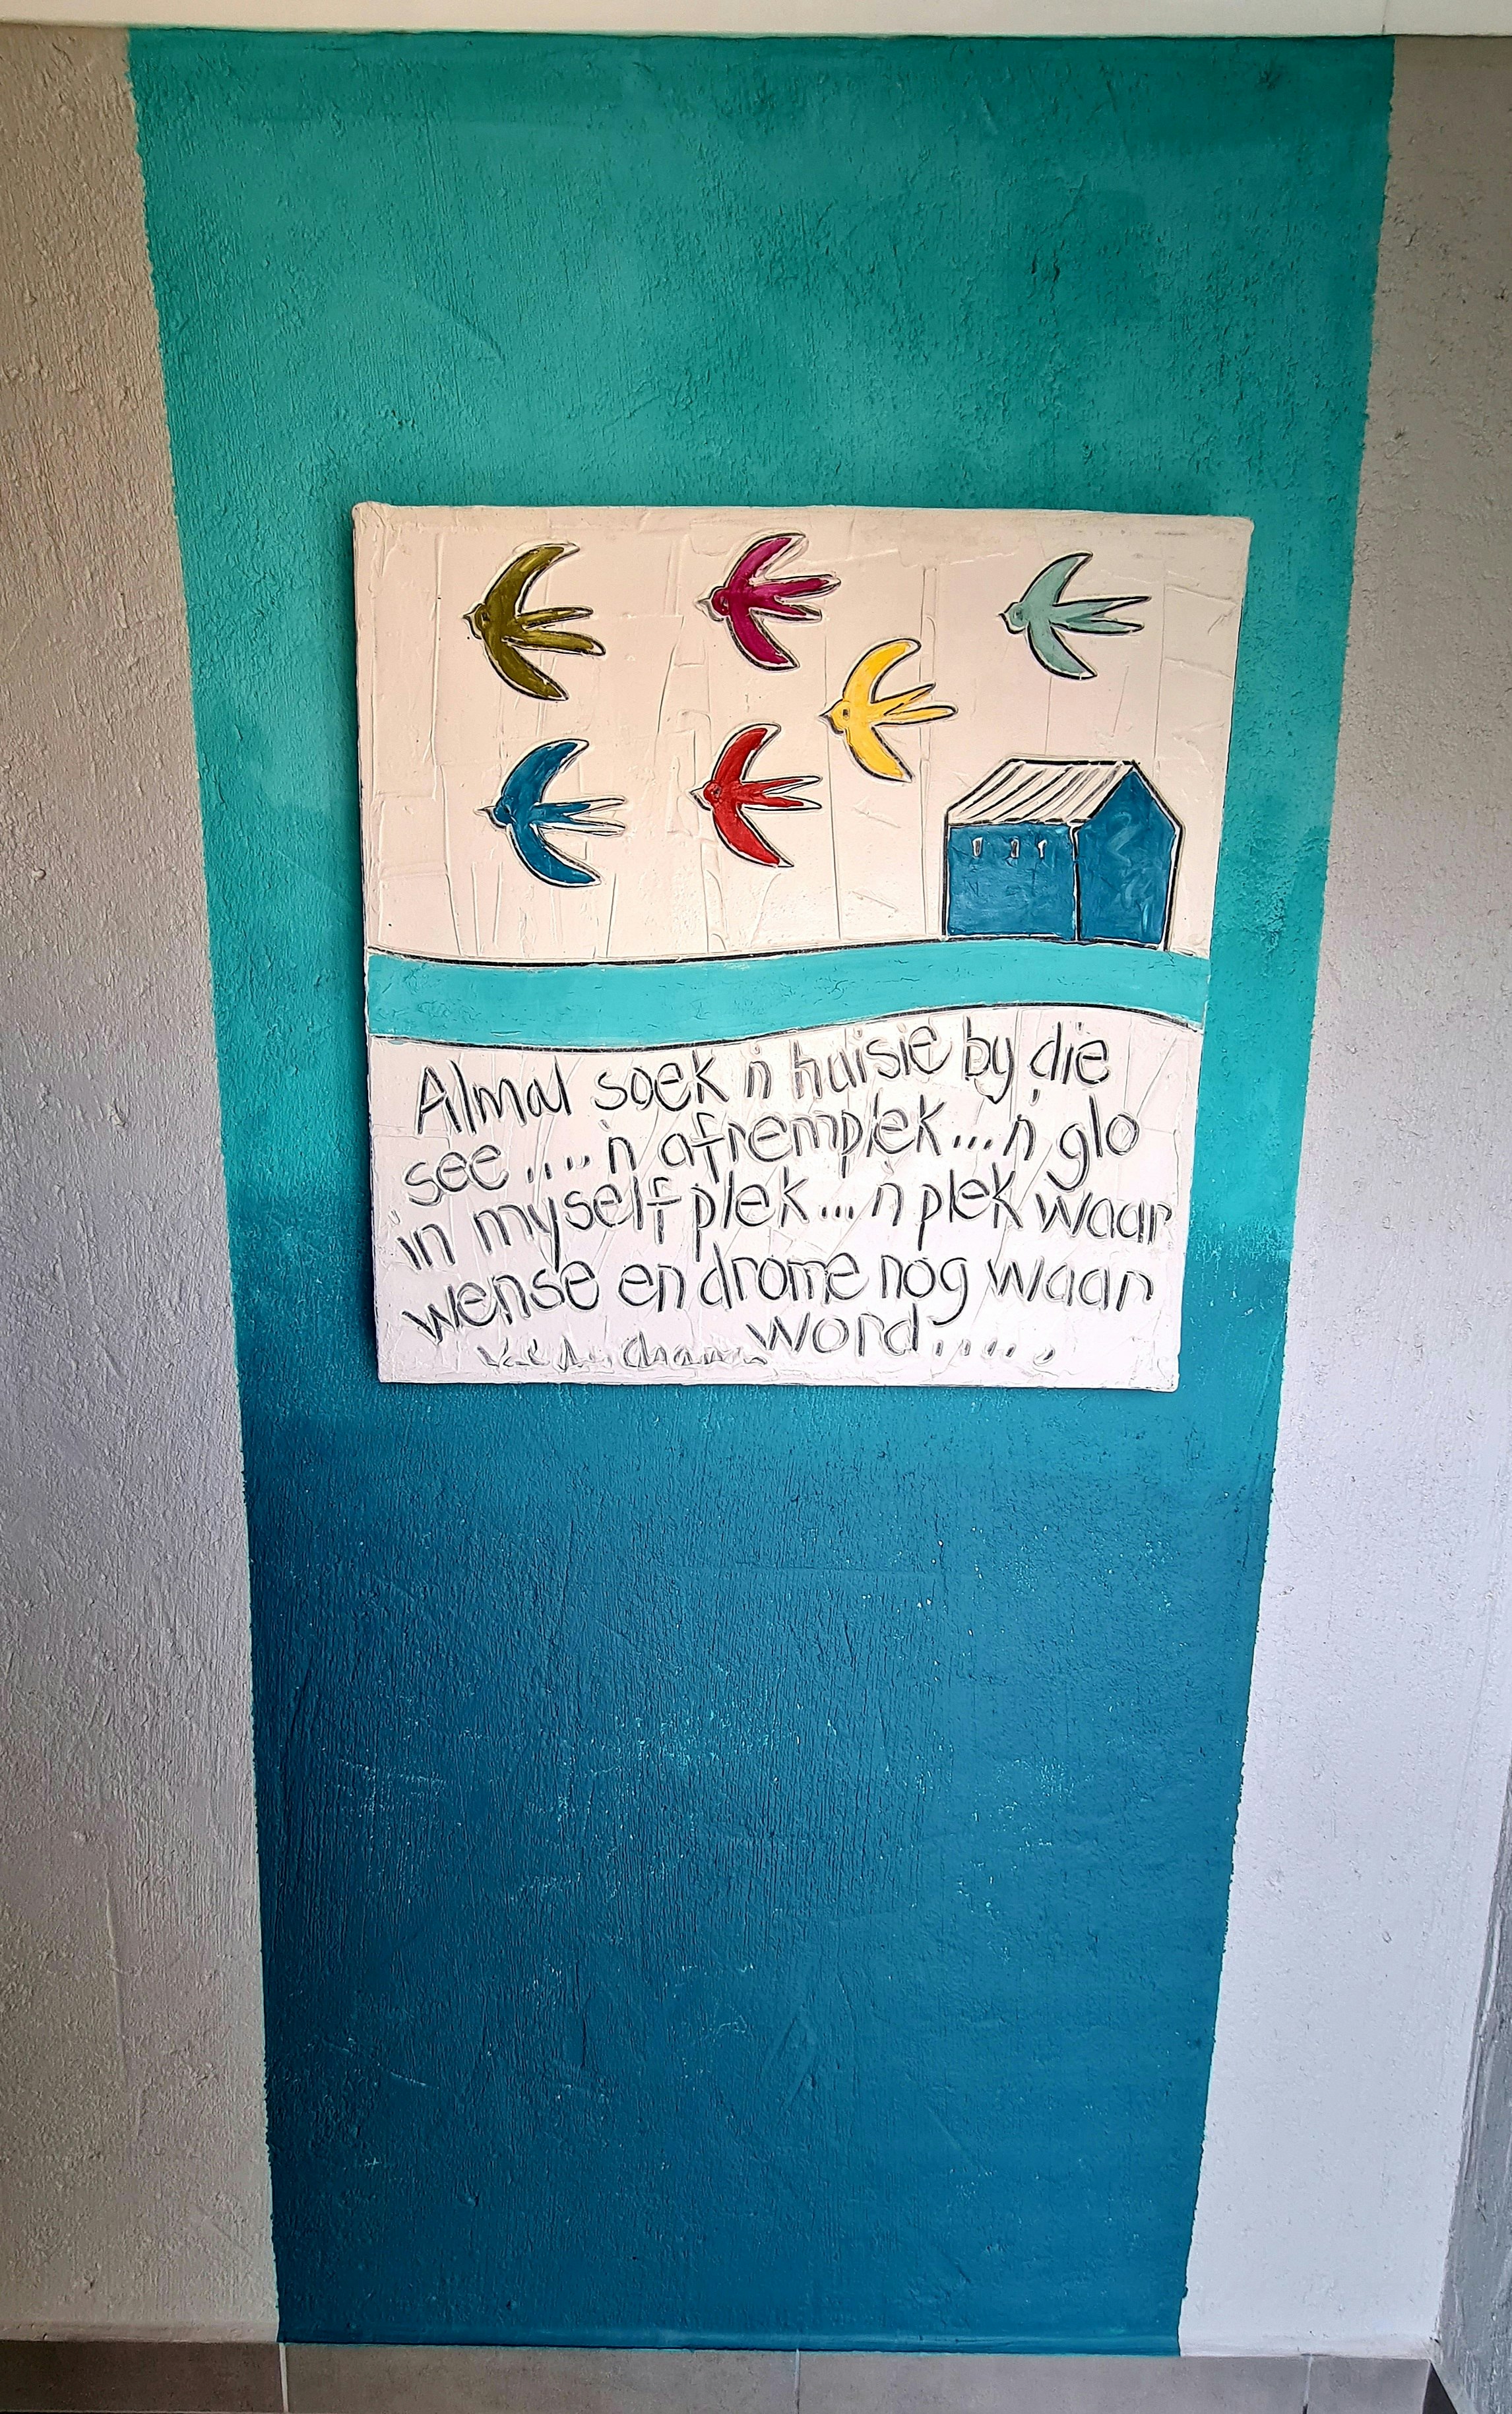 Almal soek 'n huisie by die
see.....'n afremplek...'n glo
in myself plek...'n plek waar
wense en drome nog waar
word.....